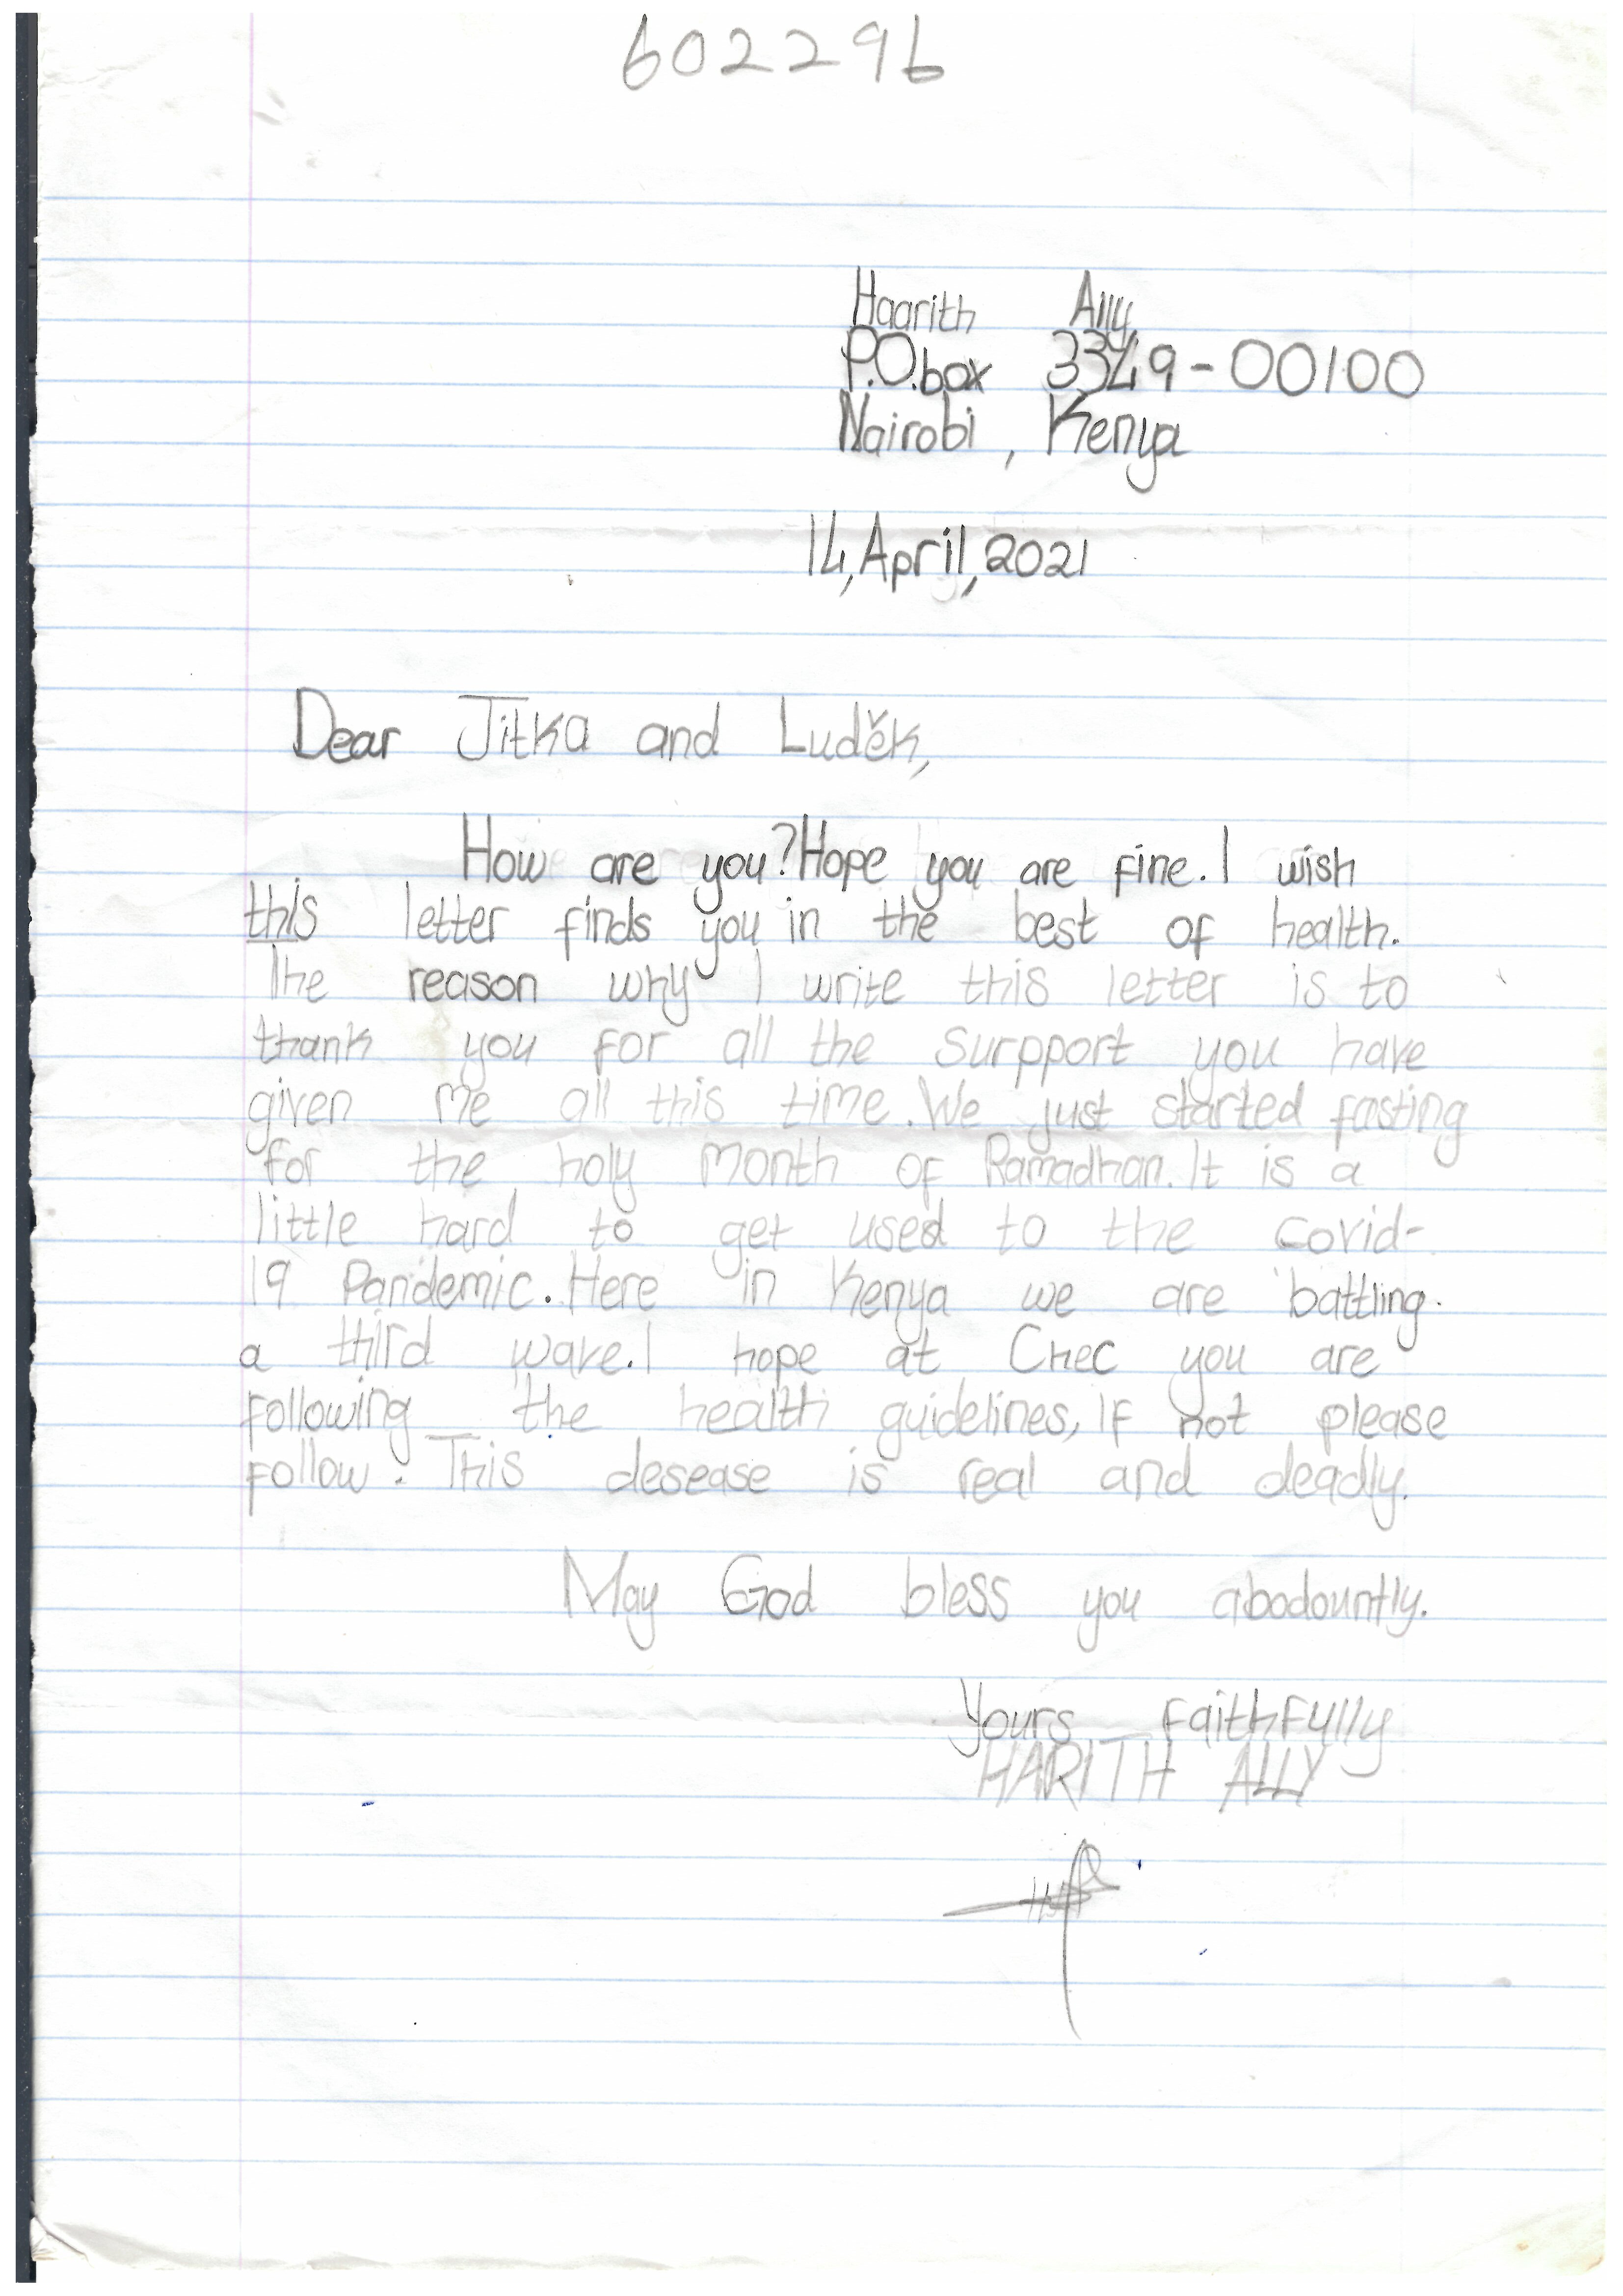 602296
Haarith Ally
P.O.box 3349-00100
Nairobi, Kenya
14,April,2021
Dear Jitka and Luděk,
How are you?Hope you are fine.I wish
this letter finds you in the best of health.
The reason why I write this letter is to
thank you for all the surpport you have
given me all this time.We just started fasting
for the holy month of Ramadhan.It is a
little hard to get used to the covid-
19 Pandemic.Here in Kenya we are battling
a third wave.I hope at Chec you are
following the health guidelines, If not please
follow. This desease is real and deadly.
May God bless you abodountly.
Yours faithfully
HARITH ALLY